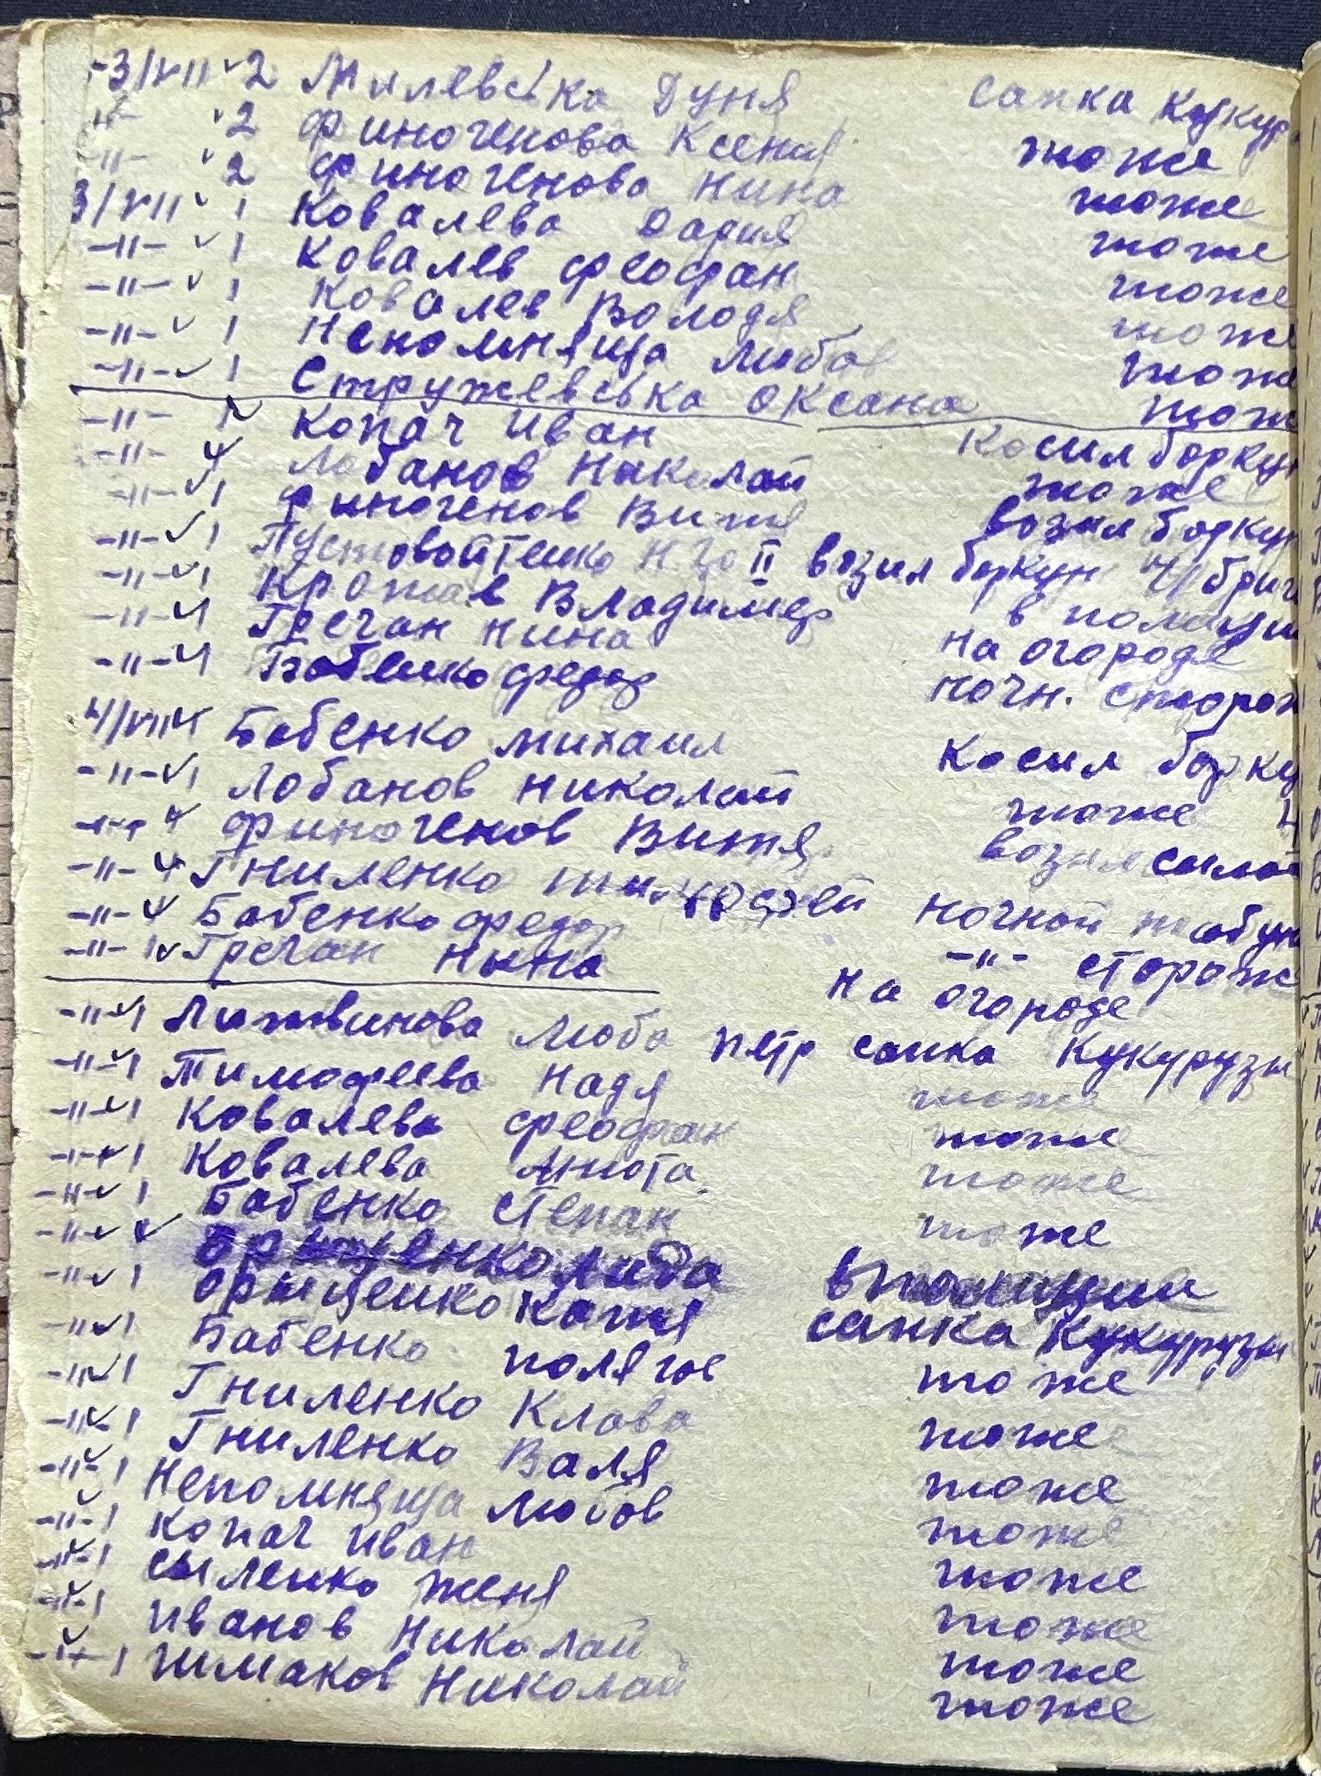 3/VII ✓2 Милевська Дуня сапка кукур
-"- ✓2 Финогенова Ксения тоже
-"- ✓2 Финогенова Нина тоже
3/VII ✓ 1 Ковалева Дария тоже
-"- ✓ 1 Ковалев Феофан тоже
-"- ✓ 1 Ковалев Володя тоже
-"- ✓ 1 Непомняща Любов тоже
-"- ✓ 1 Стружевська Оксана тоже
-"- 1✓ Копач Иван косил боркун
-"- Лобанов Николай тоже
-"- ✓1 Финогенов Витя возил боркун
-"- ✓1 Пустовойтенко II возил боркун бриг
-"- ✓1 Владимер в
-"- ✓1 Гречан Нина на огороде
-"- ✓1 Бабенко Федор ночн. сторож
Бабенко Михаил косил борку
-"- ✓1 Лобанов Николай тоже
-"- Финогенов Витя возил силос
-"- Гниленко Тимофей ночной табун
-"- Бабенко Федор -"- сторож
-"- 1✓ Гречан Нина на огороде
-"- ✓1 Литвинова Люба сапка кукурузы
-"- ✓1 Тимофеева Надя тоже
-"- ✓1 Ковалева Феофан тоже
-"- ✓1 Ковалева Анюта тоже
-"- ✓ 1 Бабенко Степан тоже
-"- ✓
-"- ✓1 Катя сапка кукурузы
-"- ✓1 Бабенко тоже
-"- ✓1 Гниленко Клава тоже
-"- ✓1 Гниленко Валя тоже
-"- ✓1 Непомняща Любов тоже
-"- ✓1 Копач Иван тоже
-"- ✓1 Женя тоже
-"- ✓1 Иванов Николай тоже
-"- ✓1 Шмаков Николай тоже